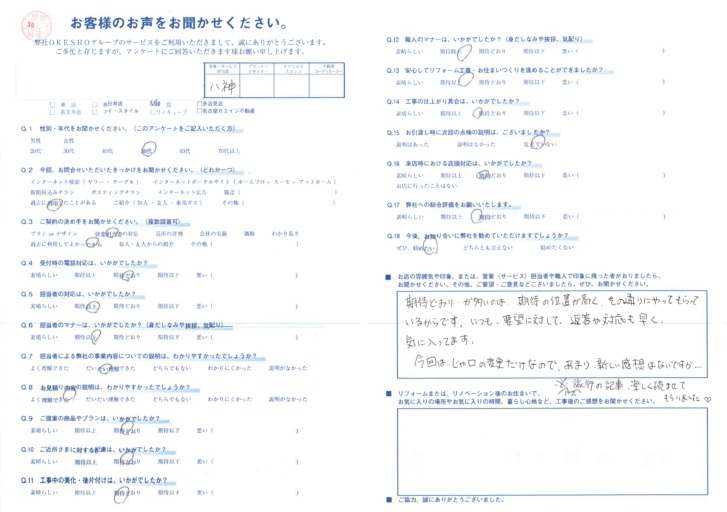 お客様のお声をお聞かせください。
弊社OKESHOグループのサービスをご利用いただきまして、誠にありがとうございます。
ご多忙と存じますが、アンケートにご回答いただきます様お願い申し上げます。
八神
Q.1 性別・年代をお聞かせください。（このアンケートをご記入いただく方）
男性 女性
20代 30代 40代 50代 60代 70代以上
Q.2 今回、お問合せいただいたきっかけをお聞かせください。（どれか一つ）
インターネット検索（ヤフー・グーグル） インターネットポータルサイト（ホームプロ・スーモ・アットホーム）
新聞折込みチラシ ポスティングチラシ インターネット広告 雑誌（ ）
過去に利用したことがある ご紹介（知人・友人・東邦ガス） その他（ ）
Q.3 ご契約の決め手をお聞かせください。（複数回答可）
プラン or デザイン 営業担当者の対応 近所の評判 会社の実績 価格 わかり易さ
過去に利用してよかったから 知人・友人からの紹介 その他（ ）
Q.4 受付時の電話対応は、いかがでしたか？
素晴らしい 期待以上 期待どおり 期待以下 悪い（ ）
Q.5 担当者の対応は、いかがでしたか？
素晴らしい 期待以上 期待どおり 期待以下 悪い（ ）
Q.6 担当者のマナーは、いかがでしたか？（身だしなみや挨拶、気配り）
素晴らしい 期待以上 期待どおり 期待以下 悪い（ ）
Q.7 担当者による弊社の事業内容についての説明は、わかりやすかったでしょうか？
よく理解できた だいたい理解できた どちらでもない わかりにくかった 説明がなかった
Q.8 お見積り内容の説明は、わかりやすかったでしょうか？
よく理解できた だいたい理解できた どちらでもない わかりにくかった 説明がなかった
Q.9 ご提案の商品やプランは、いかがでしたか？
素晴らしい 期待以上 期待どおり 期待以下 悪い（ ）
Q.10 ご近所さまに対する配慮は、いかがでしたか？
素晴らしい 期待以上 期待どおり 期待以下 悪い（ ）
Q.11 工事中の美化・後片付けは、いかがでしたか？
素晴らしい 期待以上 期待どおり 期待以下 悪い（ ）
Q.12 職人のマナーは、いかがでしたか？（身だしなみや挨拶、気配り）
素晴らしい 期待以上 期待どおり 期待以下 悪い（ ）
Q.13 安心してリフォーム工事・お住まいづくりを進めることができましたか？
素晴らしい 期待以上 期待どおり 期待以下 悪い（ ）
Q.14 工事の仕上がり具合は、いかがでしたか？
素晴らしい 期待以上 期待どおり 期待以下 悪い（ ）
Q.15 お引渡し時に次回の点検の説明は、ございましたか？
説明はあった 説明はなかった 覚えていない
Q.16 来店時における店頭対応は、いかがでしたか？
素晴らしい 期待以上 期待どおり 期待以下 悪い（ ）
お店に行ったことはない
Q.17 弊社への総合評価をお願いいたします。
素晴らしい 期待以上 期待どおり 期待以下 悪い（ ）
Q.18 今後、お知り合いに弊社を勧めていただけますでしょうか？
ぜひ、勧めたい どちらとも言えない 勧めたくない
■ お店の雰囲気や印象、または、営業（サービス）担当者や職人で印象に残った者がおりましたら、
お聞かせください。その他、ご要望・ご意見などございましたら、ぜひ、お聞かせください。
期待どおり が多いのは、期待の位置が高く、その通りにやってもらって
いるからです。いつも、要望に対して、返答や対応も早く、
気に入ってます。
今回はじゃ口の変更だけなので、あまり新しい感想はないですが…
旅行の記事、楽しく読ませて
もらいました♡
■ リフォームまたは、リノベーション後のお住まいで、
お気に入りの場所やお気に入りの時間、暮らし心地など、工事後のご感想をお聞かせください。
■ ご協力、誠にありがとうございました。